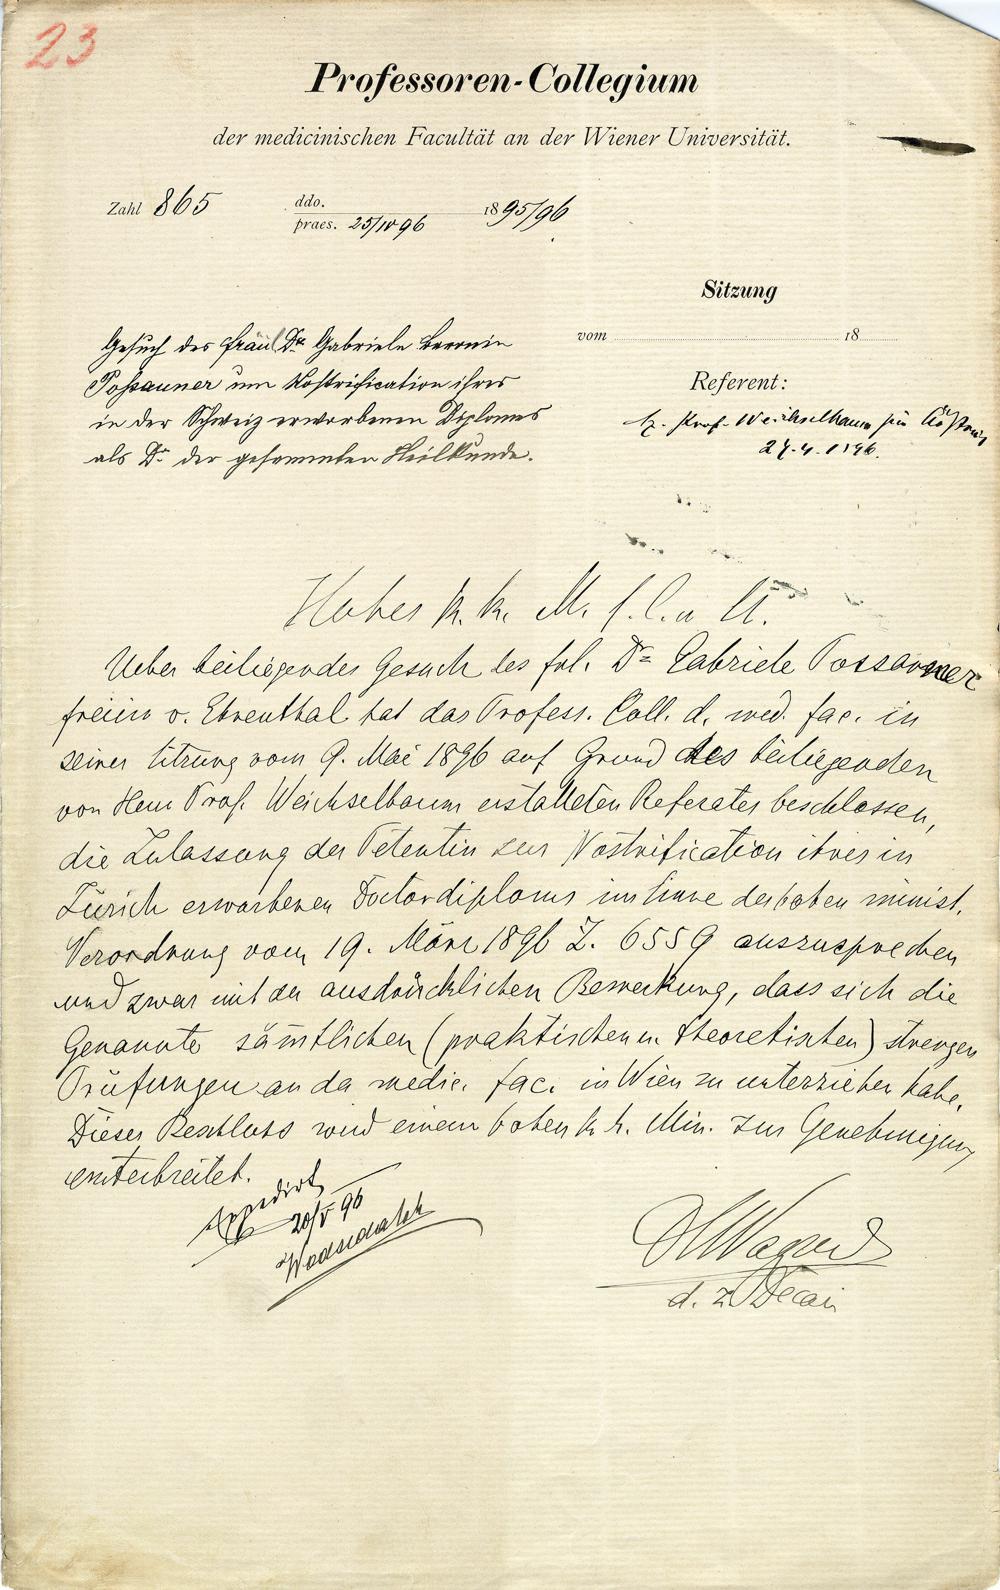 23
Professoren-Collegium
der medicinischen Facultät an der Wiener Universität.
Zahl 865 ddo. 1895/96
praes. 25/IV 96
Sitzung
vom 18
Gesuch des Fräul Dr. Gabriele Baronin
Possanner um Nostrification ihres
in der Schweiz erworbenen Diploms
als Dr. der gesammten Heilkunde.
Referent:
Prof. Weichselbaum
27.4.1896.
Hohes k. k. M. f. C. u U.
Ueber beiliegendes Gesuch des frl. Dr Gabriele Possanner
freiin v. Ehrenthal hat das Profess. Coll. d. med. fac. in
seiner Sitzung vom 9. Mai 1896 auf Grund des beiliegenden
von Herrn Prof. Weichselbaum erstatteten Referates beschlossen,
die Zulassung der Petentin zur Nostrification ihres in
Zürich erworbenen Doctordiploms im Sinne der hohen minist.
Verordnung vom 19. März 1896 Z. 6559 auszusprechen
und zwar mit der ausdrücklichen Bemerkung, dass sich die
Genannte sämtlichen (praktischen u. theoretischen) strengen
Prüfungen an der medic. fac. in Wien zu unterziehen habe.
Dieser Beschluss wird einem hohen k. k. Min. zur Genehmigung
unterbreitet.
Expedirt
20/V 96
d. z. Decan